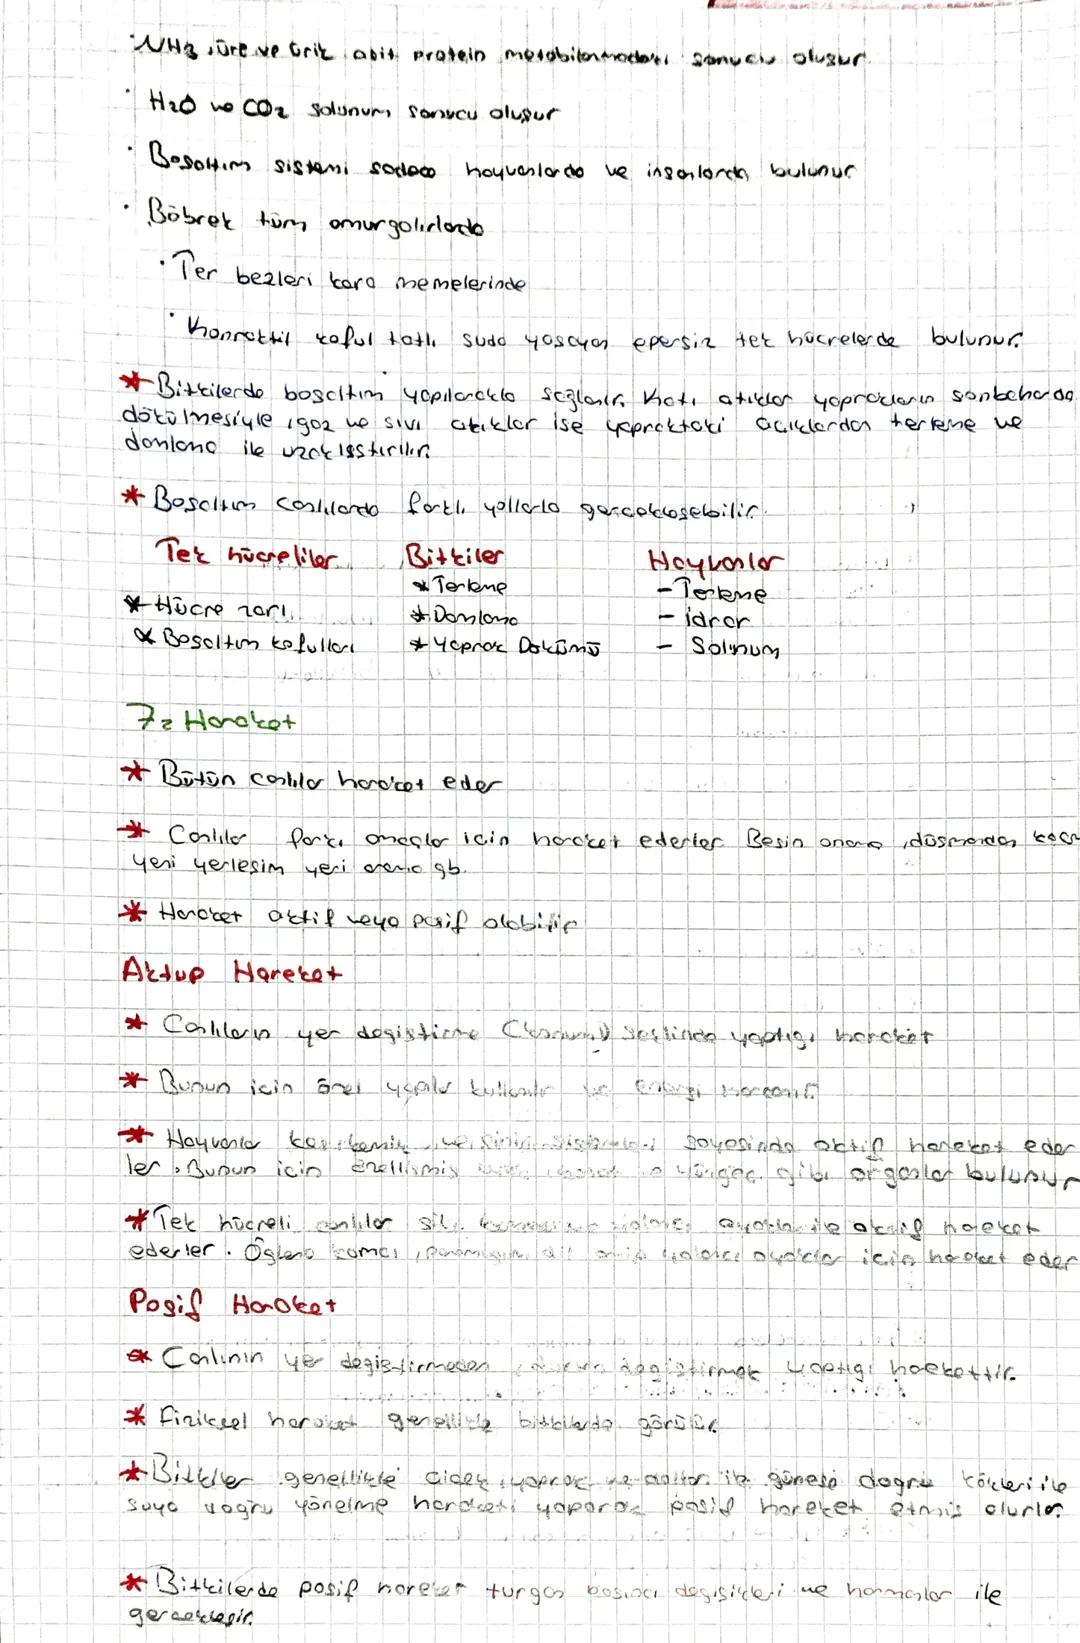 NH3, üre ve ürik asit protein metabilonmodası sonucu oluşur.
H2O ve CO2 solunum sonucu oluşur
Boşaltım sistemi sadece hayvanlarda ve insanlarda bulunur
Böbrek tüm omurgalılarda
Ter bezleri kara memelerinde
Konraktil koful tatlı suda yaşayan epersiz tek hücrelerde bulunur.
* Bitkilerde boşaltım yapılarakla sağlanır. Katı atıklar yaprakların sonbaharda
dökülmesiyle, gaz ve sıvı atıklar ise yapraktaki açıklardan terleme ve
damlama ile uzaklaştırılır.
* Boşaltım canlılarda farklı yollarla gerçekleşebilir.
Tek hücreliler Bitkiler Hayvanlar
* Terleme - Terleme
* Hücre zarı * Damlama - idrar
* Boşaltım kofulları * Yaprak Dökümü - Solunum
7= Hareket
* Bütün canlılar hareket eder
* Canlılar farklı amaçlar için hareket ederler Besin arama, düşmandan
yeni yerleşim yeri arama gb.
* Hareket aktif veya pasif olabilir
Aktup Hareket
* Canlıların yer değiştirme şeklinde yaptığı hareket
* Bunun için özel yapılar kullanılır ve enerji harcanır.
* Hayvanlar kas, kemik ve sinir sistemleri sayesinde aktif hareket eder
ler. Bunun için özelleşmiş yüzgeç gibi organlar bulunur
* Tek hücreli canlılar sil, yalancı ayaklar ile aktif hareket
ederler. Öglena kamçı, yalancı ayaklar için hareket eder
Pasif Hareket
* Canlının yer değiştirmeden değiştirmek yaptığı harekettir.
* Fiziksel hareket genellikle bitkilerde görülür
* Bitkiler genellikle çiçek, yaprak ve dalları ile güneşe doğru kökleri ile
suya doğru yönelme hareketi yaparak pasif hareket etmiş olurlar.
* Bitkilerde pasif hareket turgor basıncı değişikleri ve hormonlar ile
gerçekleşir.